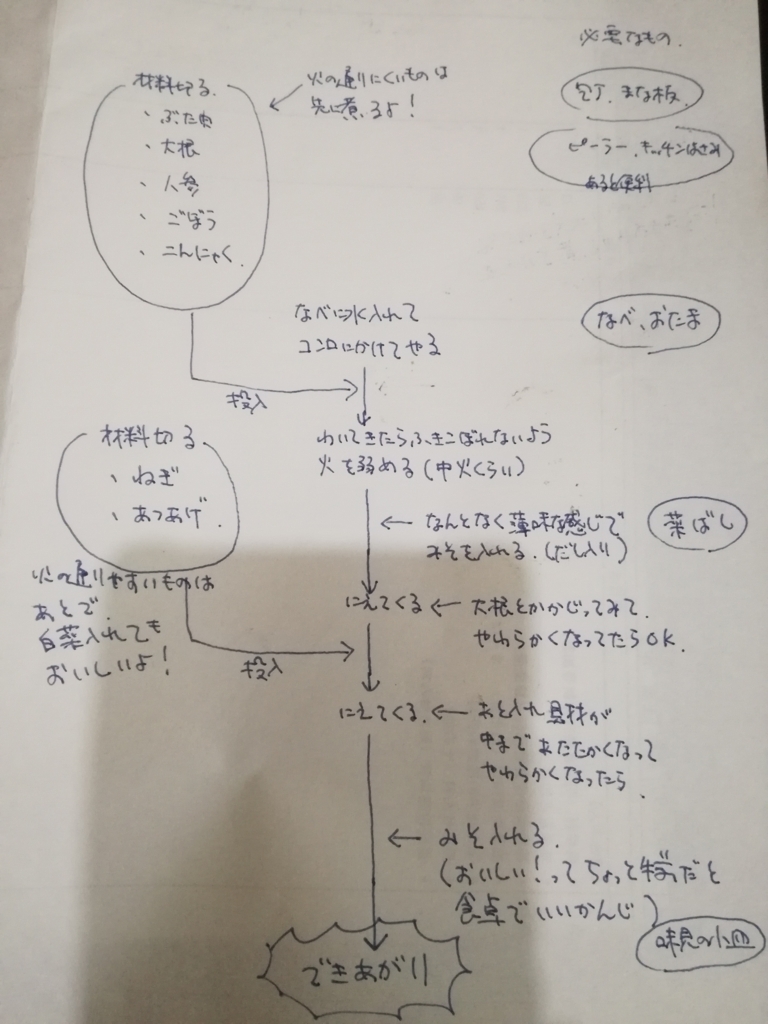 必要なもの.
材料切る.
・ぶた肉
・大根
・人参
・ごぼう
・こんにゃく.
火の通りにくいものは
先に煮るよ！
包丁、まな板.
ピーラー、キッチンはさみ
あると便利
なべに水入れて
コンロにかけてやる
なべ、おたま
投入
わいてきたらふきこぼれないよう
火を弱める(中火くらい)
材料切る
・ねぎ
・あつあげ.
火の通りやすいものは
あとで.
白菜入れても
おいしいよ！
投入
なんとなく薄味な感じで
みそを入れる.(だし入り)
菜ばし
にえてくる
大根とかかじってみて.
やわらかくなってたらOK.
にえてくる.
あと入れ具材が
中まであたたかくなって
やわらかくなったら.
みそ入れる.
(おいしい！ってちょっと手前だと
食卓でいいかんじ)
味見の小皿
できあがり